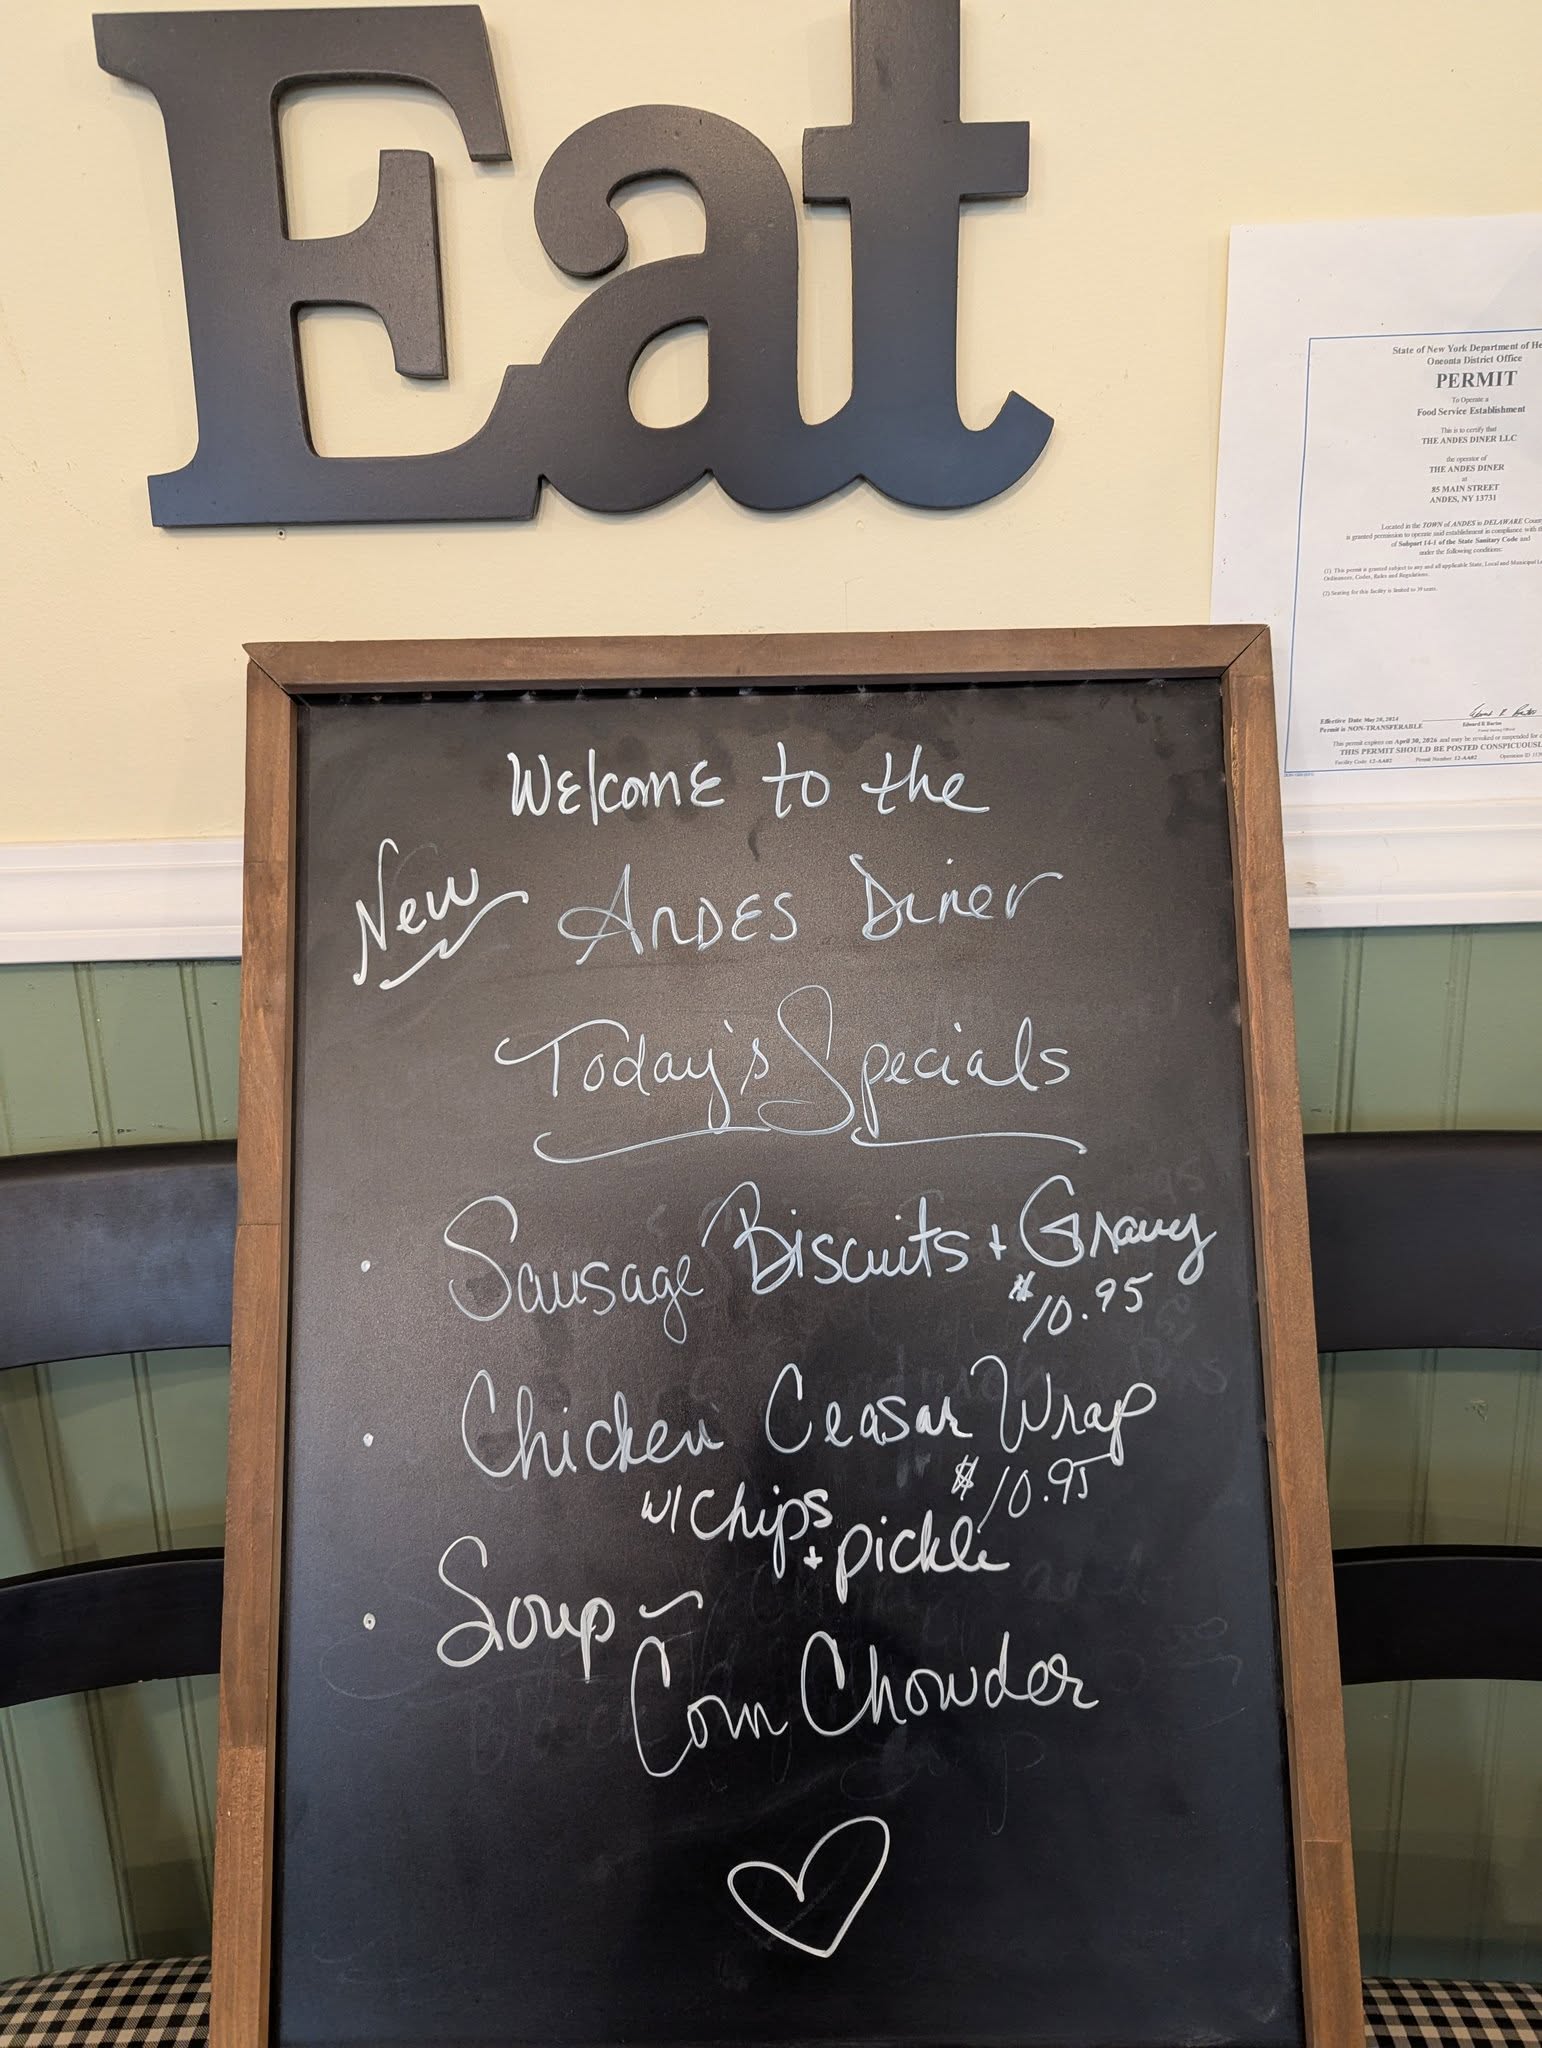 Eat
State of New York Department of He
Oneonta District Office
PERMIT
To Operate a
Food Service Establishment
This is to certify that
THE ANDES DINER LLC
the operator of
THE ANDES DINER
at
85 MAIN STREET
ANDES, NY 13731
Located in the TOWN of ANDES in DELAWARE Count
is granted permission to operate said establishment in compliance with th
of Subpart 14-1 of the State Sanitary Code and
under the following conditions:
(1) This permit is granted subject to any and all applicable State, Local and Municipal
Ordinances, Codes, Rules and Regulations.
(2) Seating for this facility is limited to 39 seats.
Effective Date May 20, 2024
Permit is NON-TRANSFERABLE
This permit expires on April 30, 2026 and may be revoked or suspended for
THIS PERMIT SHOULD BE POSTED CONSPICUOUSL
Facility Code 12-AA02 Permit Number 12-AA02 Operation ID
Welcome to the
New
Andes Diner
Today's Specials
• Sausage Biscuits + Gravy
$10.95
• Chicken Ceasar Wrap
$10.95
w/ chips
+ pickle
• Soup ~
Corn Chowder